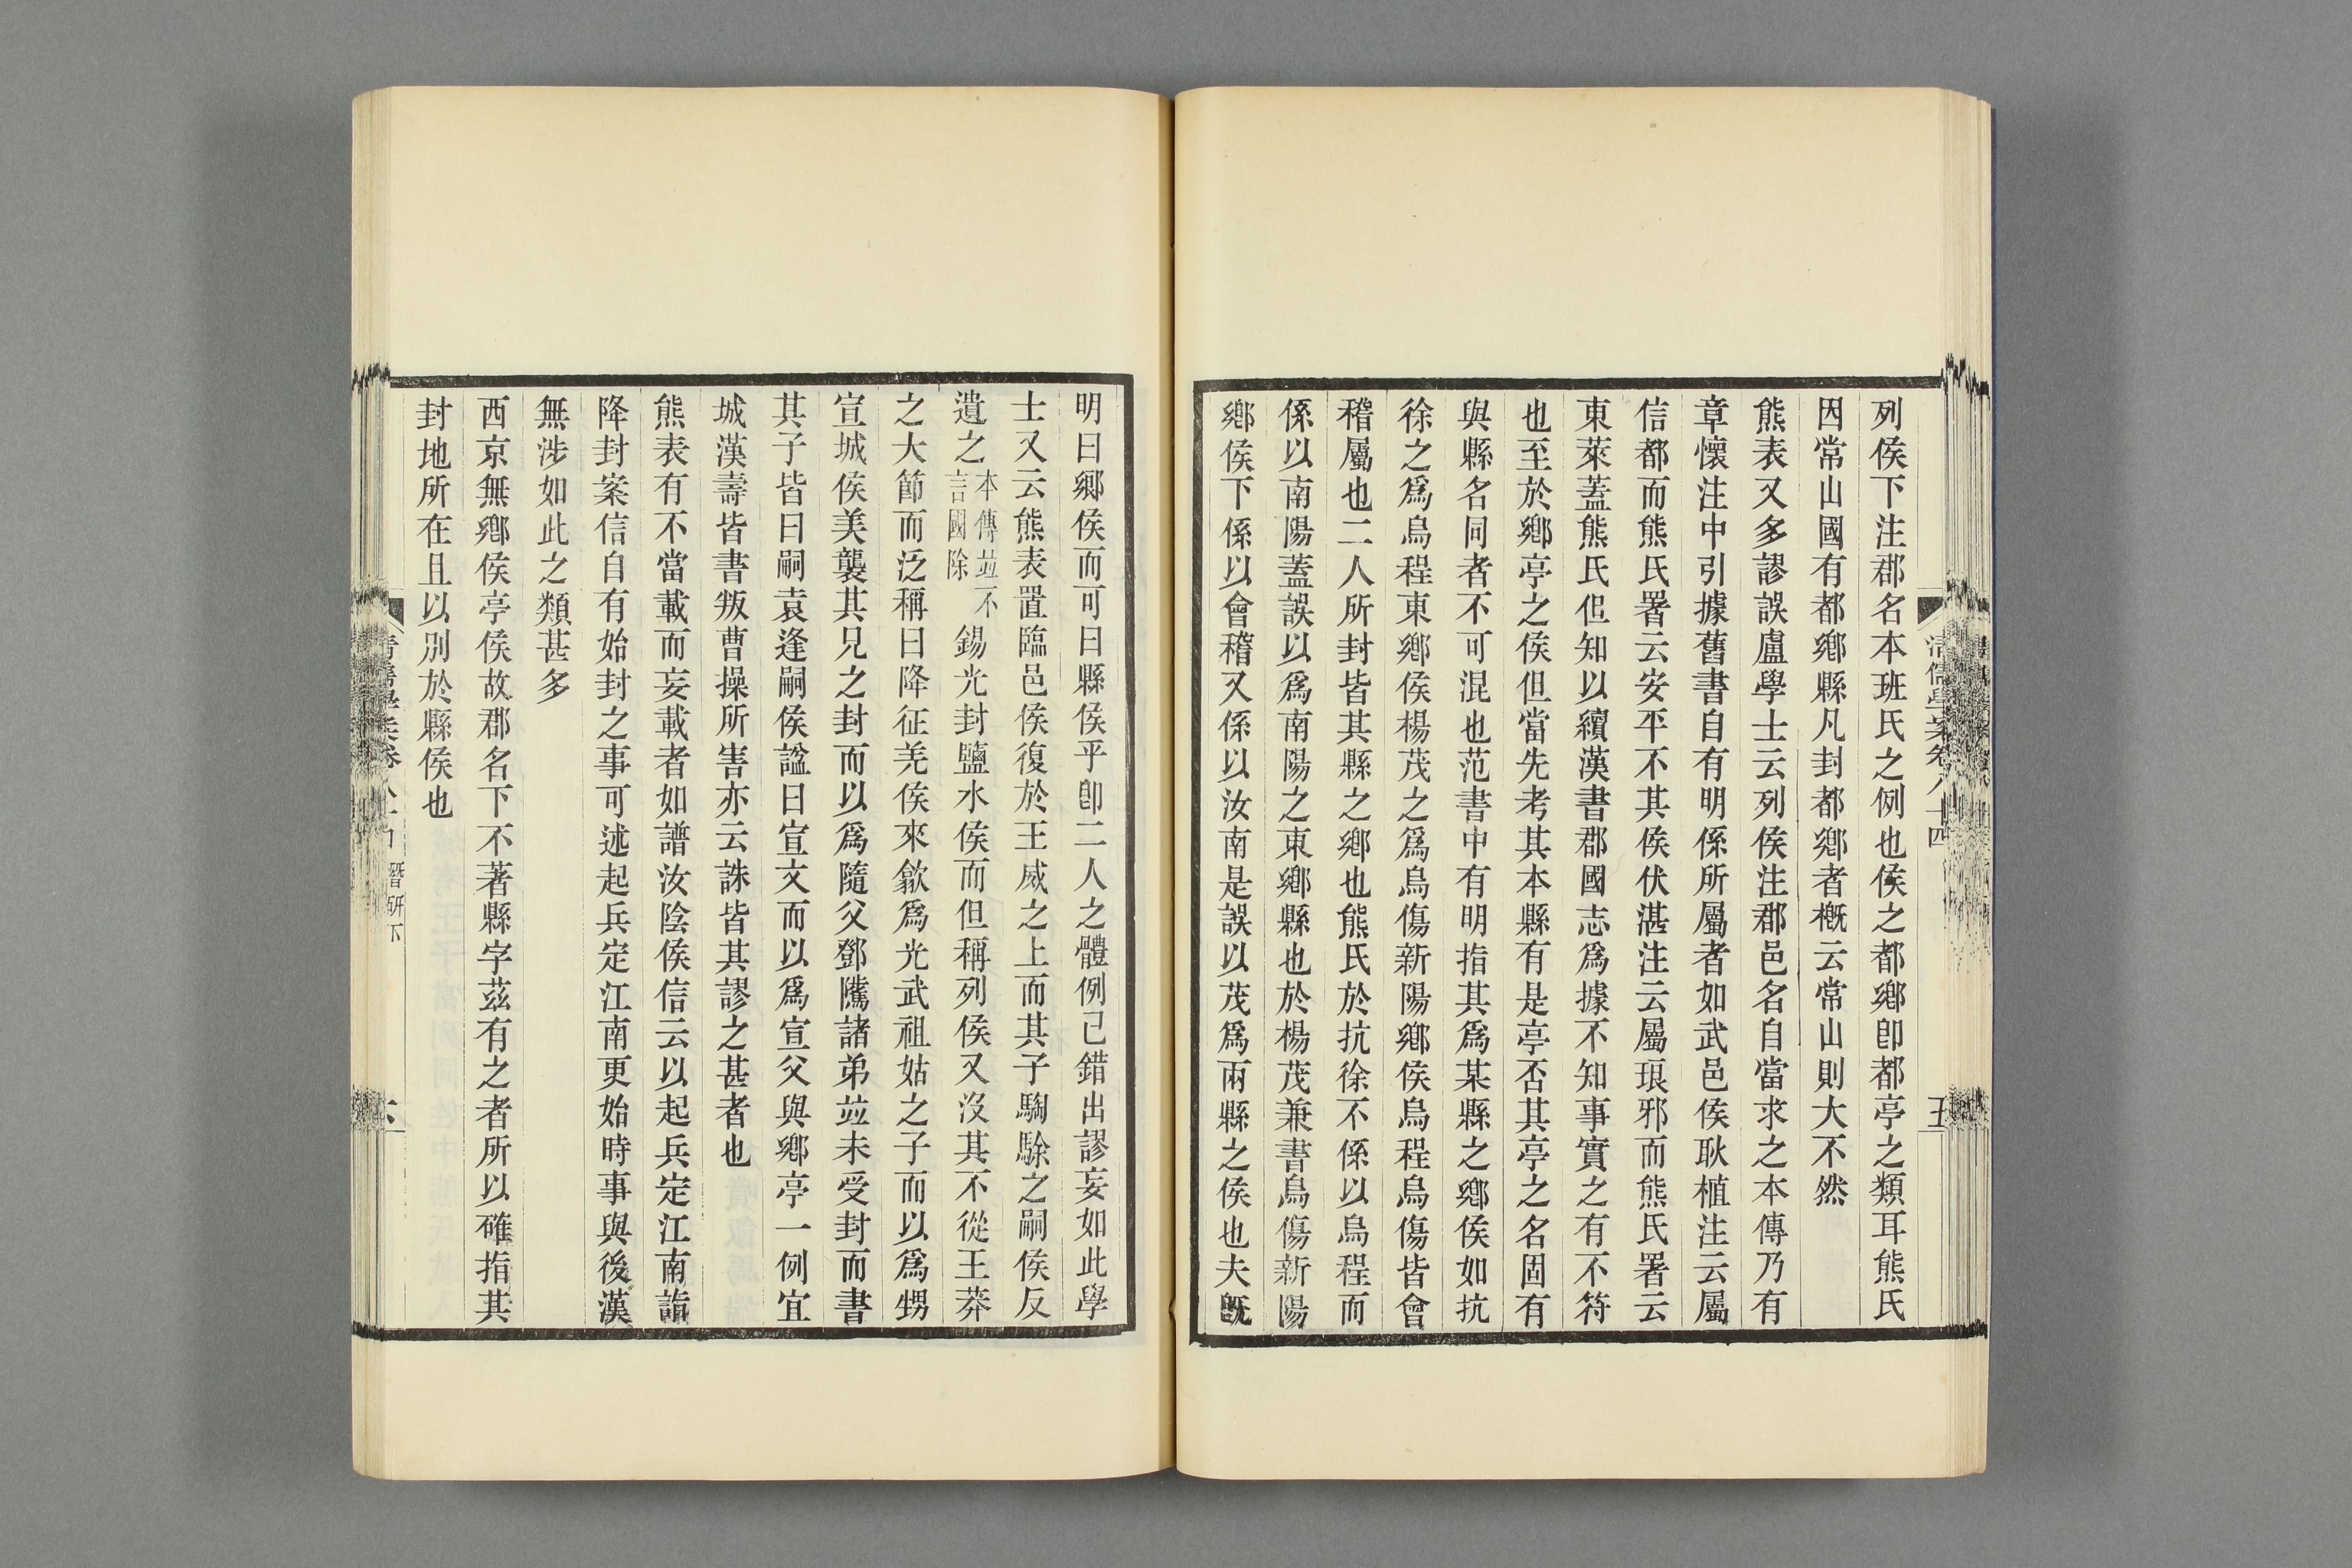 清儒學案卷八十四
五
列侯下注郡名本班氏之例也侯之都鄉卽都亭之類耳熊氏
因常山國有都鄉縣凡封都鄉者槪云常山則大不然
熊表又多謬誤盧學士云列侯注郡邑名自當求之本傳乃有
章懷注中引據舊書自有明係所屬者如武邑侯耿植注云屬
信都而熊氏署云安平不其侯伏湛注云屬琅邪而熊氏署云
東萊蓋熊氏但知以續漢書郡國志爲據不知事實之有不符
也至於鄉亭之侯但當先考其本縣有是亭否其亭之名固有
與縣名同者不可混也范書中有明指其爲某縣之鄉侯如抗
徐之爲烏程東鄉侯楊茂之爲烏傷新陽鄉侯烏程烏傷皆會
稽屬也二人所封皆其縣之鄉也熊氏於抗徐不係以烏程而
係以南陽蓋誤以爲南陽之東鄉縣也於楊茂兼書烏傷新陽
鄉侯下係以會稽又係以汝南是誤以茂爲兩縣之侯也夫旣
明曰鄉侯而可曰縣侯乎卽二人之體例已錯出謬妄如此學
士又云熊表置臨邑侯復於王威之上而其子騊駼之嗣侯反
遺之本傳竝不言國除錫光封鹽水侯而但稱列侯又沒其不從王莽
之大節而泛稱曰降征羌侯來歙爲光武祖姑之子而以爲甥
宣城侯美襲其兄之封而以爲隨父鄧騭諸弟竝未受封而書
其子皆曰嗣袁逢嗣侯諡曰宣文而以爲宣父與鄉亭一例宜
城漢壽皆書叛曹操所害亦云誅皆其謬之甚者也
熊表有不當載而妄載者如譜汝陰侯信云以起兵定江南詣
降封案信自有始封之事可述起兵定江南更始時事與後漢
無涉如此之類甚多
西京無鄉侯亭侯故郡名下不著縣字茲有之者所以確指其
封地所在且以別於縣侯也
潛研下